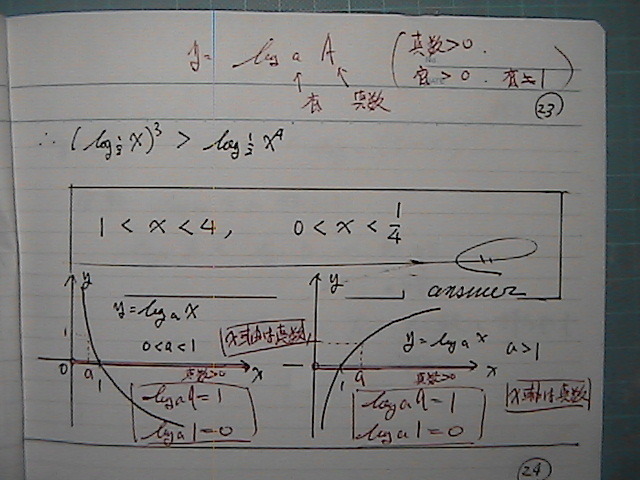 y = log a A (真数>0.
底>0. 底≠1)
↑ ↑
底 真数
23
∴ (log 1/2 x)^3 > log 1/2 x^4
1 < x < 4, 0 < x < 1/4
answer
y
y = log a x
0<a<1
x軸は真数
1
0 a 1 x
真数>0
log a a = 1
log a 1 = 0
y
y = log a x a>1
1 a x
真数>0
x軸は真数
log a a = 1
log a 1 = 0
24